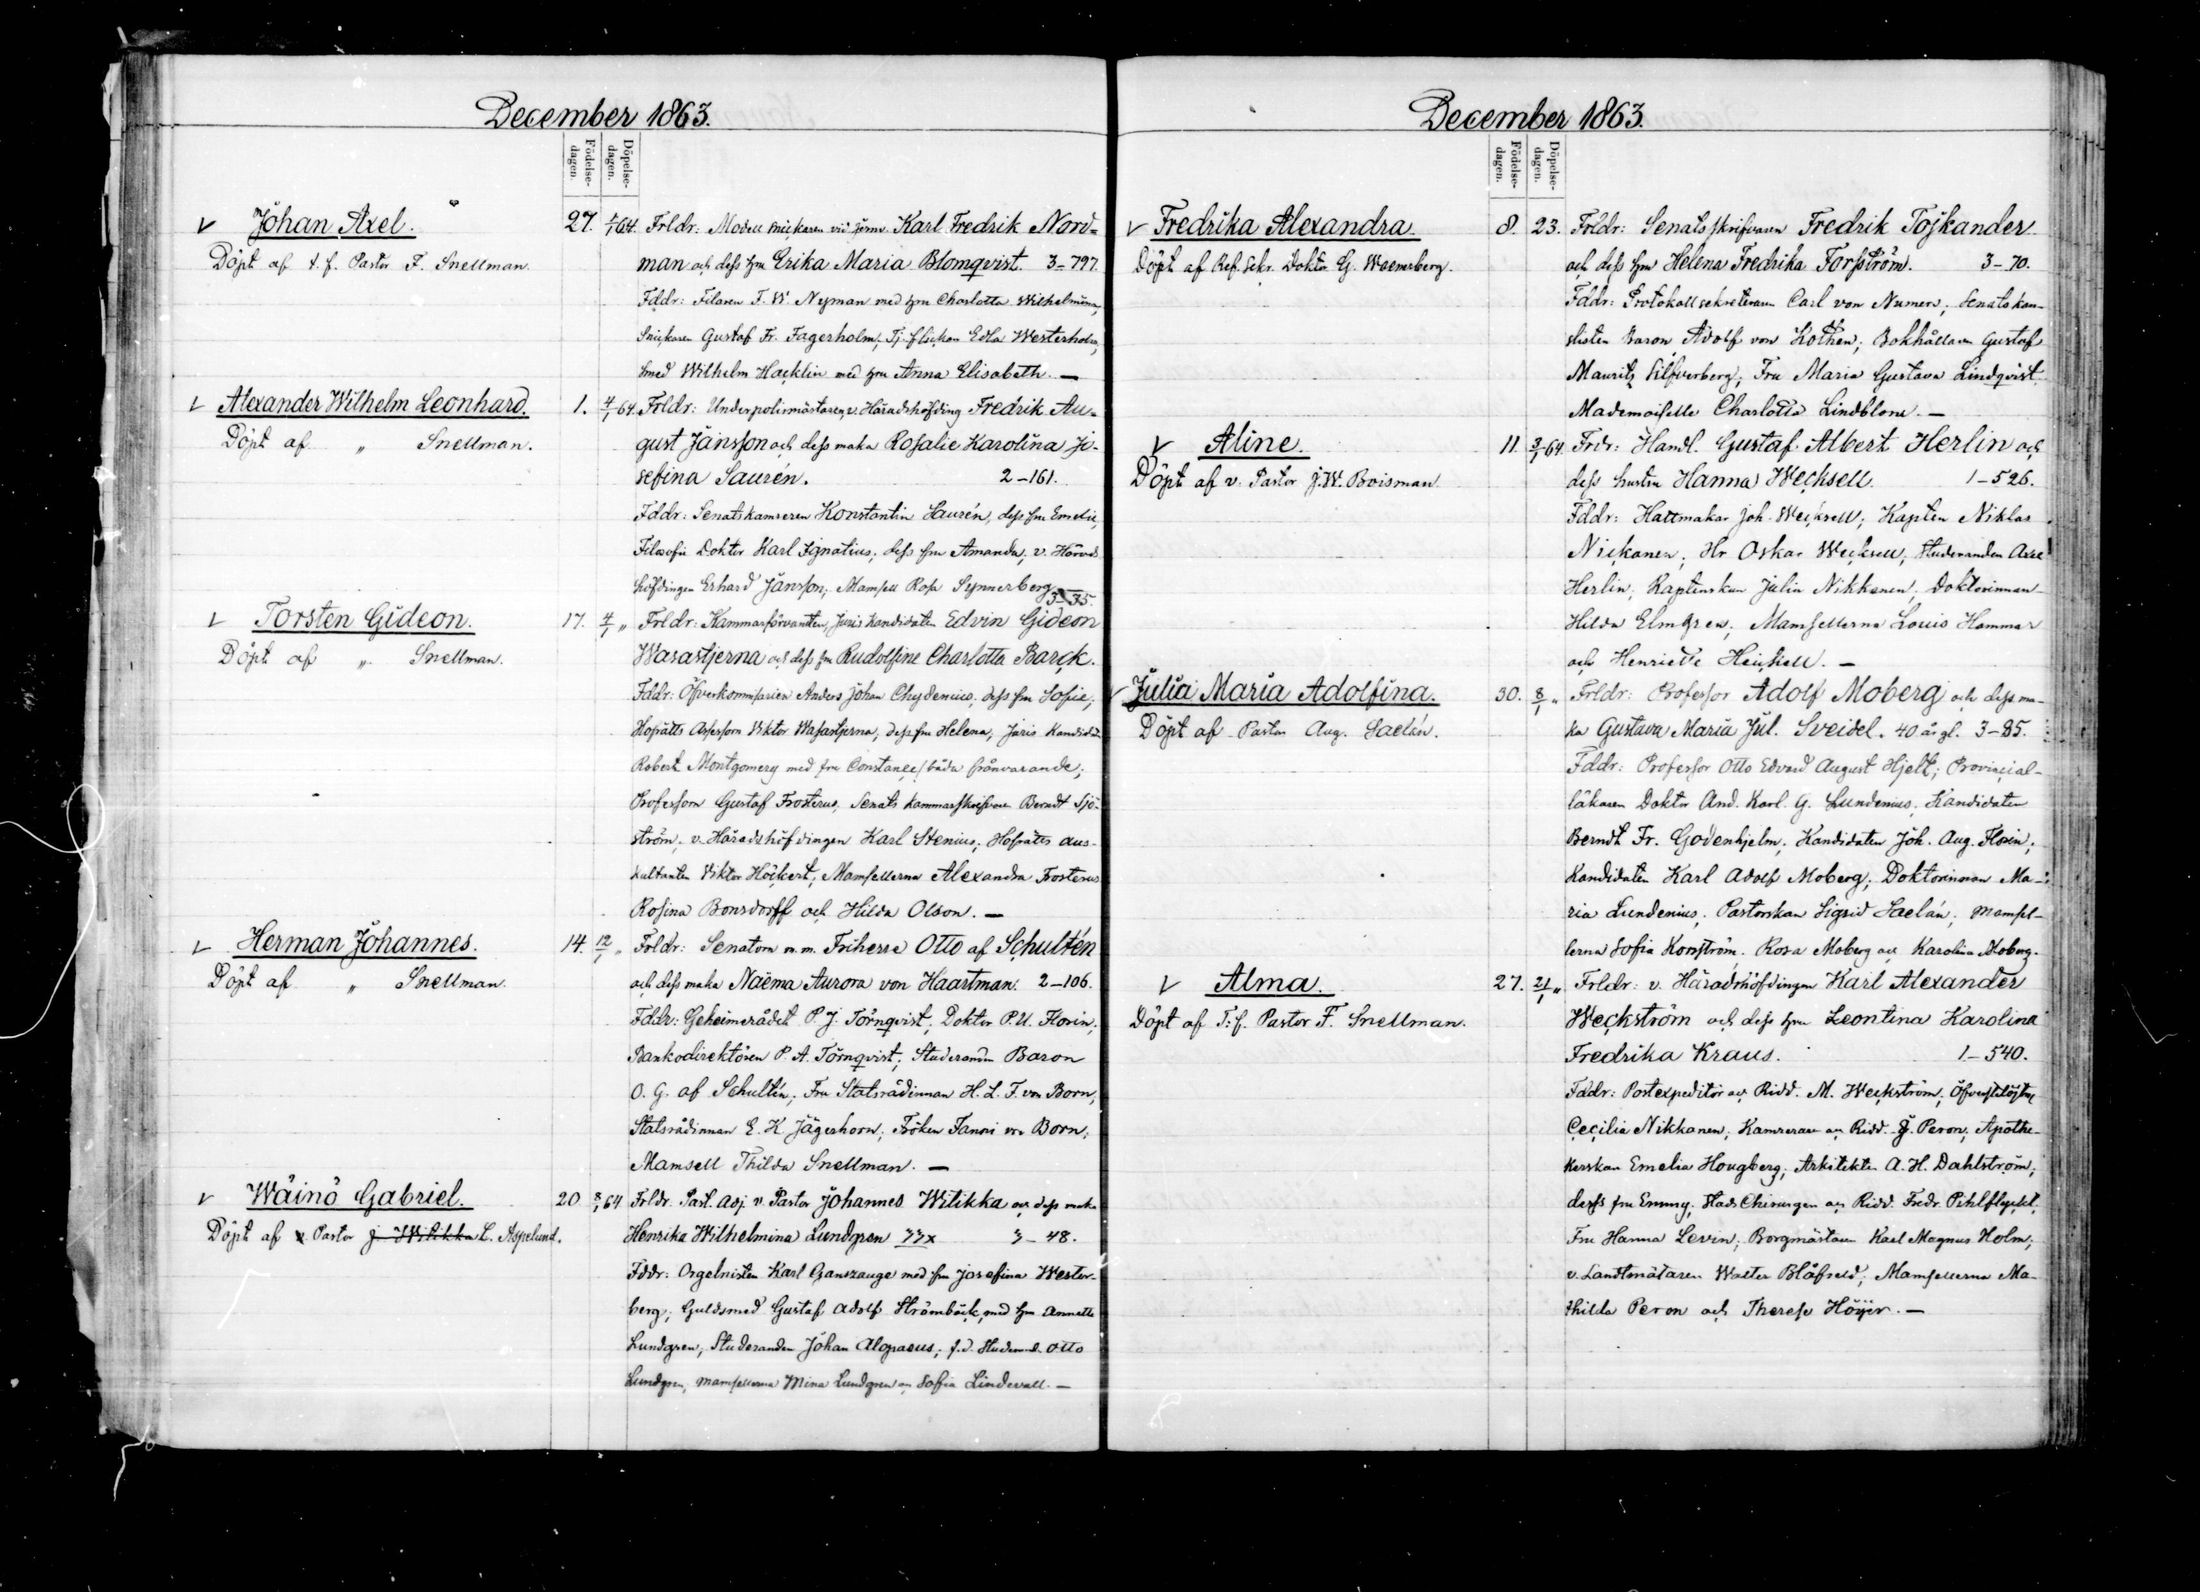 December 1863.
Födelse-dagen.
Döpelse-dagen.
Johan Axel.
Döpt af t. f. Pastor F. Snellman.
27. 1/1 64.
Frldr: Modell snickaren vid jernv. Karl Fredrik Nord=
man och dess hru Erika Maria Blomqvist. 3-797.
Fddr: Filaren F. W. Nyman med hru Charlotta Wilhelmina,
Snickaren Gustaf Fr. Fagerholm, Tj. flickan Edla Westerholm,
Smed Wilhelm Hacklin med hru Anna Elisabeth. —
Alexander Wilhelm Leonhard.
Döpt af " Snellman.
1. 4/1 64.
Frldr: Underpolismästaren, v. Häradshöfding Fredrik Au=
gust Jänsson och dess maka Rosalie Karolina Jo-
sefina Saurén. 2-161.
Fddr: Senatskamreren Konstantin Saurén, dess fru Emelie,
Filosofie Doktor Karl Ignatius; dess fru Amanda; v. Härads
höfdingen Erhard Jänsson; Mamsell Rosa Synnerberg
3-35.
Torsten Gideon.
Döpt af " Snellman.
17. 4/1 "
Frldr: Kammarförvanten, Juris kandidaten Edvin Gideon
Wasastjerna och dess fru Rudolfine Charlotta Barck.
Fddr: Öfverkommisarien Anders Johan Chydenius, dess fru Sofie;
Hofrätts Assessorn Viktor Wasastjerna, dess fru Helena, Juris Kandidat
Robert Montgomery med fru Constance, båda frånvarande;
Professorn Gustaf Frosterus, Senats kammarskrifvaren Berndt Sjö-
ström, v. Häradshöfdingen Karl Stenius, Hofrätts aus-
kultanten Viktor Höckert, Mamsellerna Alexandra Frosterus
Rosina Bonsdorff och Hilda Olson. —
Herman Johannes.
Döpt af " Snellman.
14. 12/1 "
Frldr: Senatorn m. m. Friherre Otto af Schultén
och dess maka Naëma Aurora von Haartman. 2-106.
Fddr: Geheimerådet P. J. Törnqvist, Doktor P. U. Florin,
Bankodirektören P. A. Törnqvist, Studeranden Baron
O. G. af Schultén, Fru Statsrådinnan H. L. F. von Born,
Statsrådinnan E. K Jägerhorn, Fröken Fanni von Born,
Mamsell Thilda Snellman. —
Wäinö Gabriel.
Döpt af v Pastor J. Witikka L. Aspelund.
20 8/1 64
Frldr. Past. Adj. v. Pastor Johannes Witikka och dess maka
Henrika Wilhelmina Lundgren 33x 3-48.
Fddr: Orgelnisten Karl Ganszauge med fru Josefina Wester-
berg, Guldsmed Gustaf Adolf Strömbäck, med hru Annette
Lundgren, Studeranden Johan Alopaeus, f.d. Student Otto
Lundgren, Mamsellerna Mina Lundgren och Sofia Lindevall. —
December 1863.
Födelse-dagen.
Döpelse-dagen.
Fredrika Alexandra.
Döpt af Ref. Sekr. Doktor G. Waenerberg.
8. 23.
Frldr: Senatsskrifvaren Fredrik Tojkander
och dess hru Helena Fredrika Forsström. 3-70.
Fddr: Protokollsekreteraren Carl von Numers, Senatskan-
slisten Baron Adolf von Kothen; Bokhållaren Gustaf
Mauritz Silfverberg, Fru Maria Gustava Lindqvist
Mademoiselle Charlotta Lindblom. —
Aline.
Döpt af v. Pastor J. W. Boisman
11. 3/1 64.
Frldr: Handl. Gustaf Albert Herlin och
dess hustru Hanna Wecksell. 1-526.
Fddr: Hattmakar Joh. Wecksell, Kapten Niklas
Nickanen, Hr Oskar Wecksell, Studeranden Axel
Herlin, Kaptenskan Julia Nikkanen, Doktorinnan
Hilda Elmgren, Mamsellerna Louis Hammar
och Henriette Heickell. —
Julia Maria Adolfina.
Döpt af Pastor Aug. Saelán.
30. 8/1 "
Frldr: Professor Adolf Moberg och dess ma-
ka Gustava Maria Jul. Sveidel. 40 år gl. 3-85.
Fddr: Professor Otto Edvard August Hjelt; Provincial-
läkaren Doktor And. Karl. G. Lundenius, Kandidaten
Berndt Fr. Godenhjelm, Kandidaten Joh. Aug. Florin;
Kandidaten Karl Adolf Moberg; Doktorinnan Ma-
ria Lundenius, Pastorskan Sigrid Saelán, Mamsel-
lerna Sofia Konström, Rosa Moberg och Karolina Moberg.
Alma.
Döpt af T. f. Pastor F. Snellman.
27. 21/1 "
Frldr: v. Häradshöfdingen Karl Alexander
Weckström och dess hru Leontina Karolina
Fredrika Kraus. 1-540.
Fddr: Postexpeditör och Ridd. M. Weckström,
Cecilia Nikkanen, Kamreraren och Ridd. J. Peron, Apothe-
kerskan Emelia Hougberg; Arkitekten A. H. Dahlström;
derss fru Emmy, Stads Chirurgen och Ridd. Fredr. Pihlflyckt,
Fru Hanna Levin; Borgmästaren Karl Magnus Holm,
v. Landtmätaren Walter Blåfield, Mamsellerna Ma-
thilda Peron och Therese Höijer. —